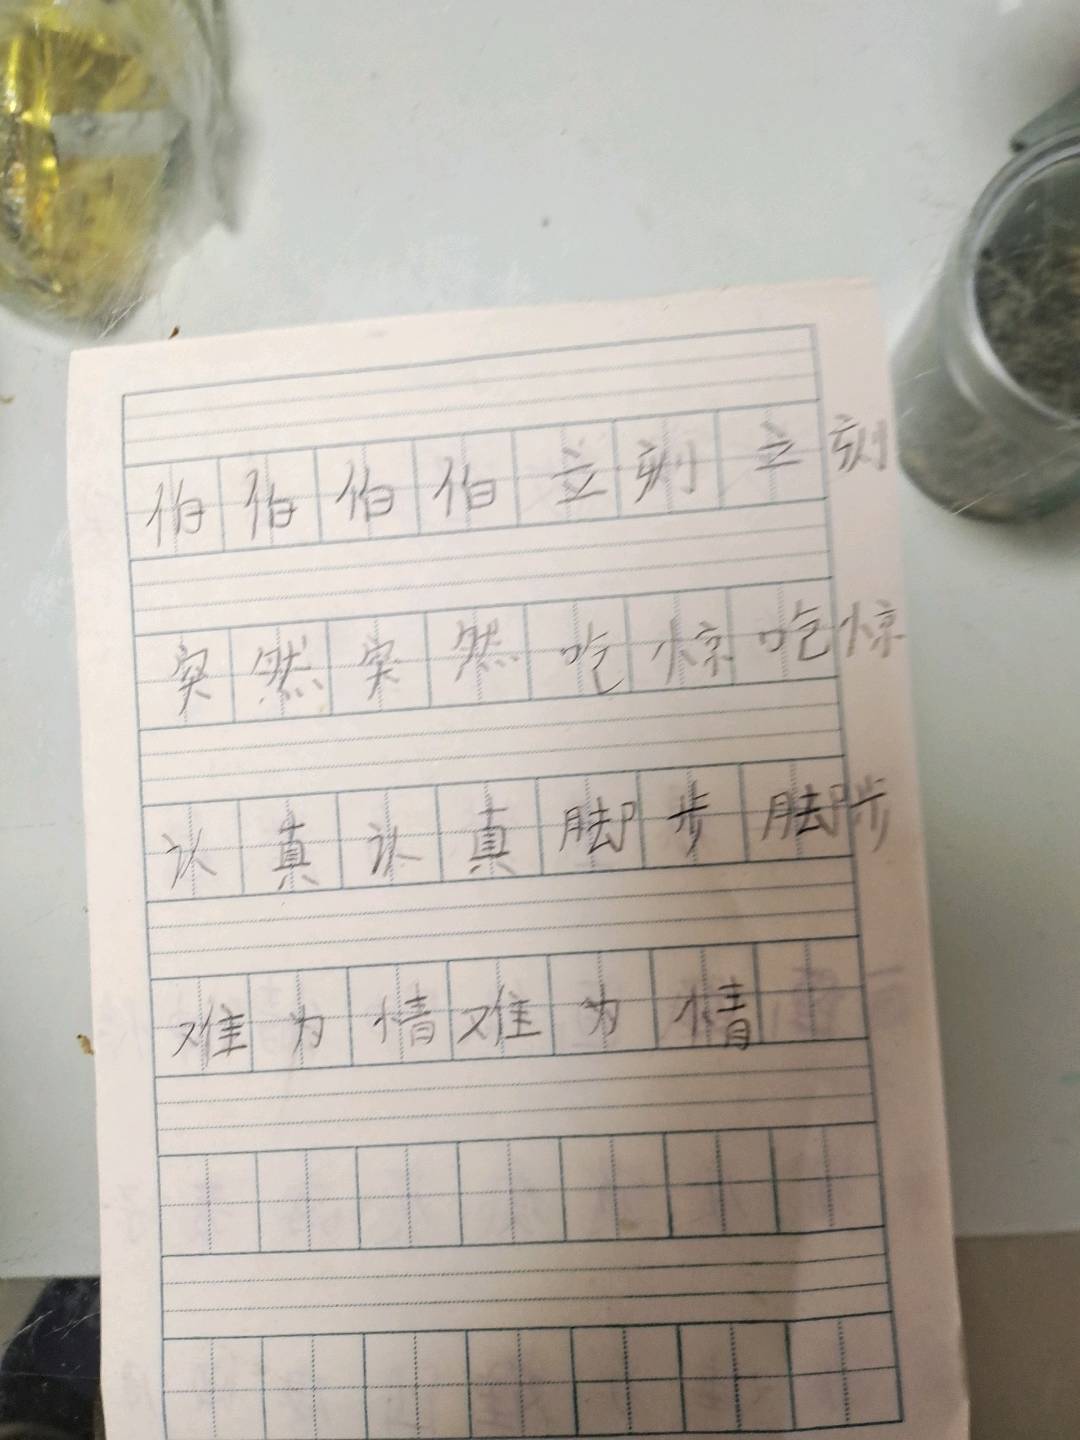 伯伯伯伯立刻立刻
突然突然吃惊吃惊
认真认真脚步脚步
难为情难为情